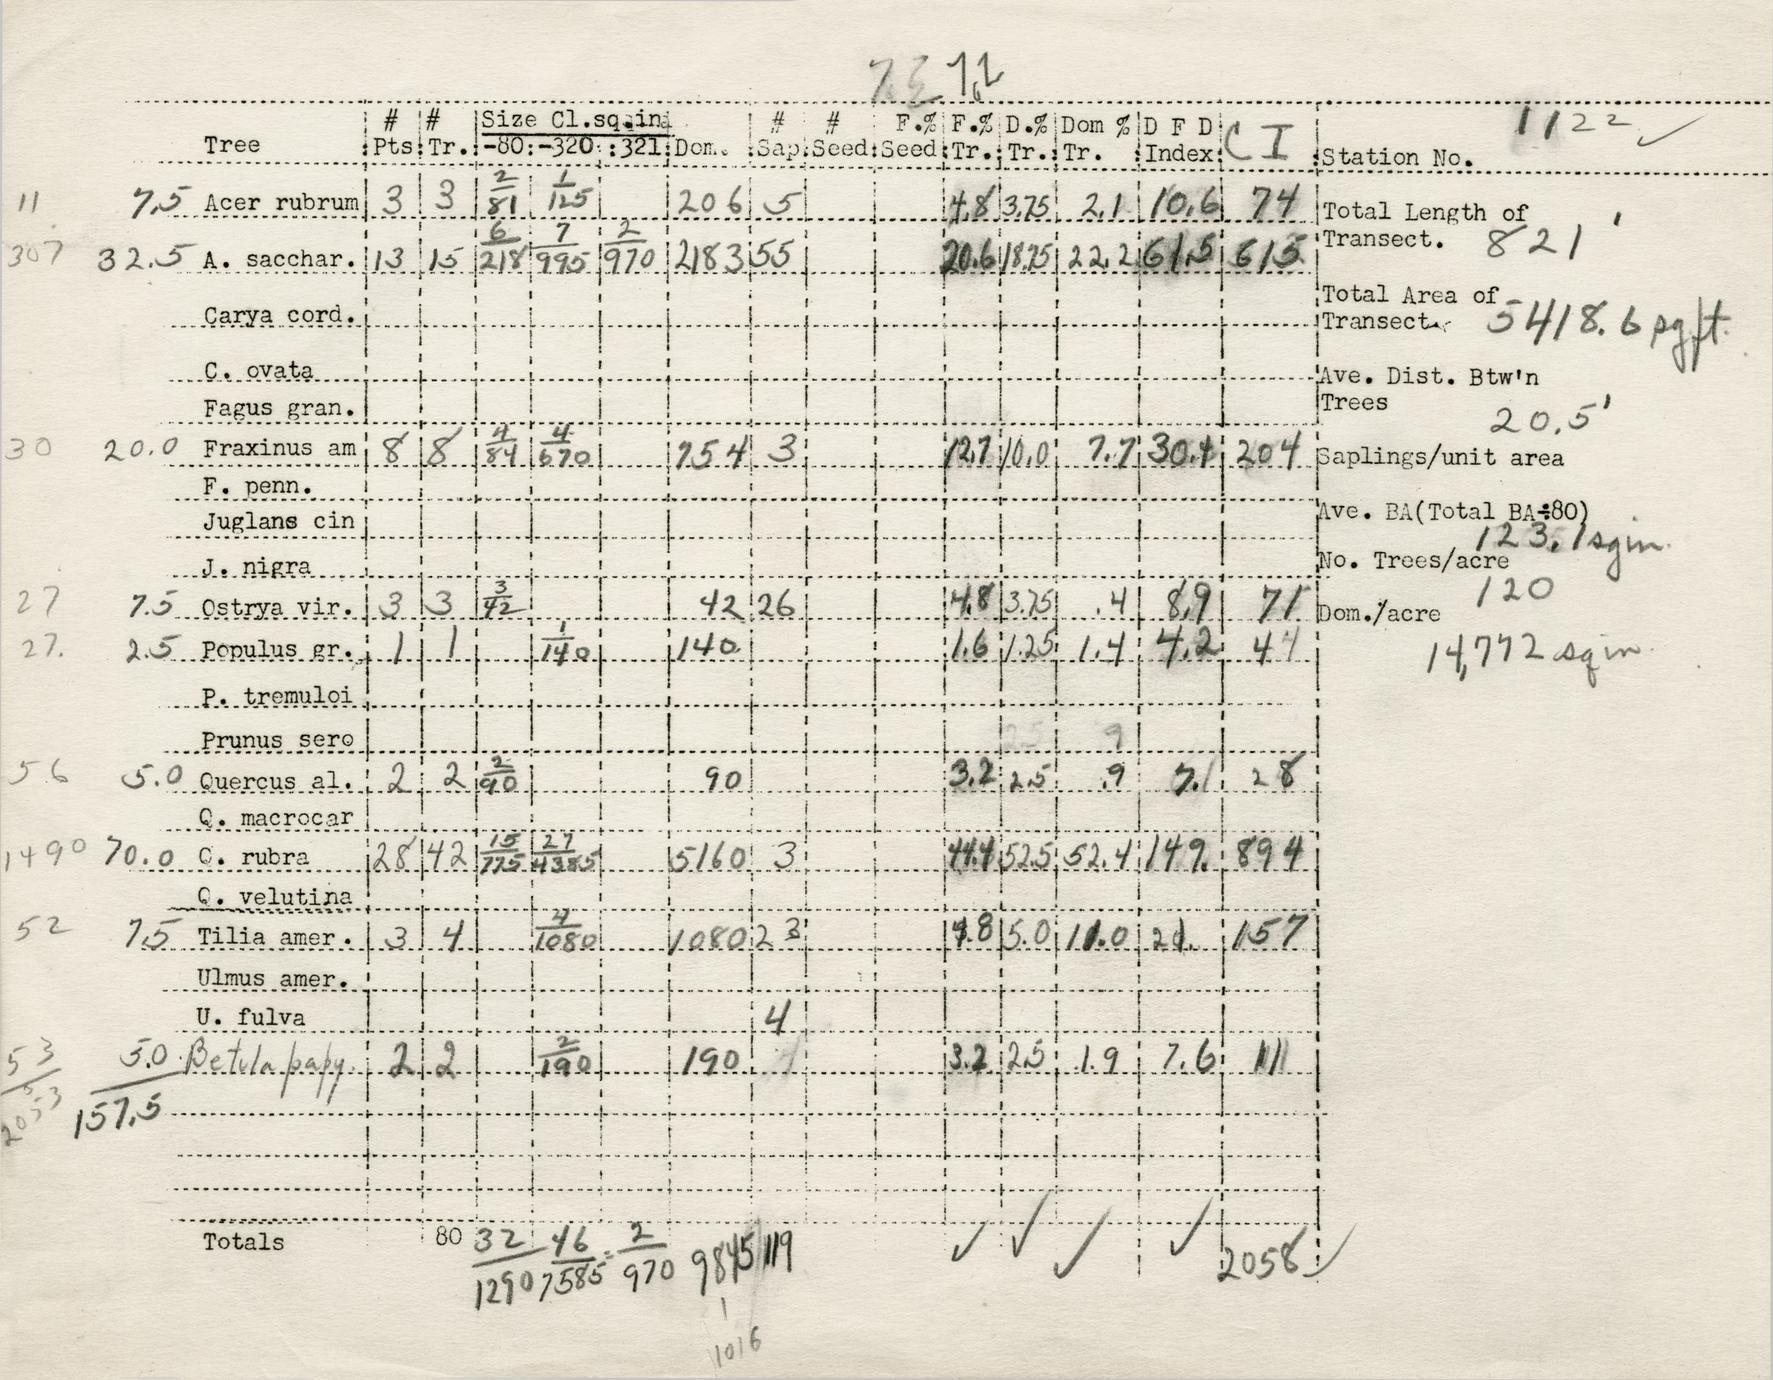 # # Size Cl.sq.in # # F.% F.% D.% Dom % D F D C I
Tree Pts Tr. -80 -320 321 Dom. Sap. Seed Seed Tr. Tr. Tr. Index Station No. 1122 ✓
11 7.5 Acer rubrum 3 3 2/81 1/125 206 5 4.8 3.75 2.1 10.6 74
Total Length of Transect. 821'
307 32.5 A. sacchar. 13 15 6/218 7/995 2/970 2183 55 20.6 18.75 22.2 61.5 615
Carya cord.
Total Area of Transect. 5418.6 sq ft.
C. ovata
Ave. Dist. Btw'n Trees 20.5'
Fagus gran.
30 20.0 Fraxinus am 8 8 4/84 4/670 754 3 12.7 10.0 7.7 30.4 204
Saplings/unit area
F. penn.
Juglans cin
Ave. BA(Total BA÷80) 123.1 sq in.
J. nigra
No. Trees/acre 120
27 7.5 Ostrya vir. 3 3 3/42 42 26 4.8 3.75 .4 8.9 71
Dom./acre 14,772 sq in.
27. 2.5 Populus gr. 1 1 1/140 140 1.6 1.25 1.4 4.2 44
P. tremuloi
Prunus sero 2.5 9
56 5.0 Quercus al. 2 2 2/90 90 3.2 2.5 .9 7.1 28
Q. macrocar
1490 70.0 Q. rubra 28 42 15/775 27/4385 5160 3 44.4 52.5 52.4 149. 894
Q. velutina
52 7.5 Tilia amer. 3 4 4/1080 1080 23 4.8 5.0 11.0 21. 157
Ulmus amer.
U. fulva 4
53 5.0 Betula papy. 2 2 2/190 190 3.2 2.5 1.9 7.6 111
157.5
Totals 80 32/1290 46/7585 2/970 9845 119 ✓ ✓ ✓ ✓ 2058 ✓
1016